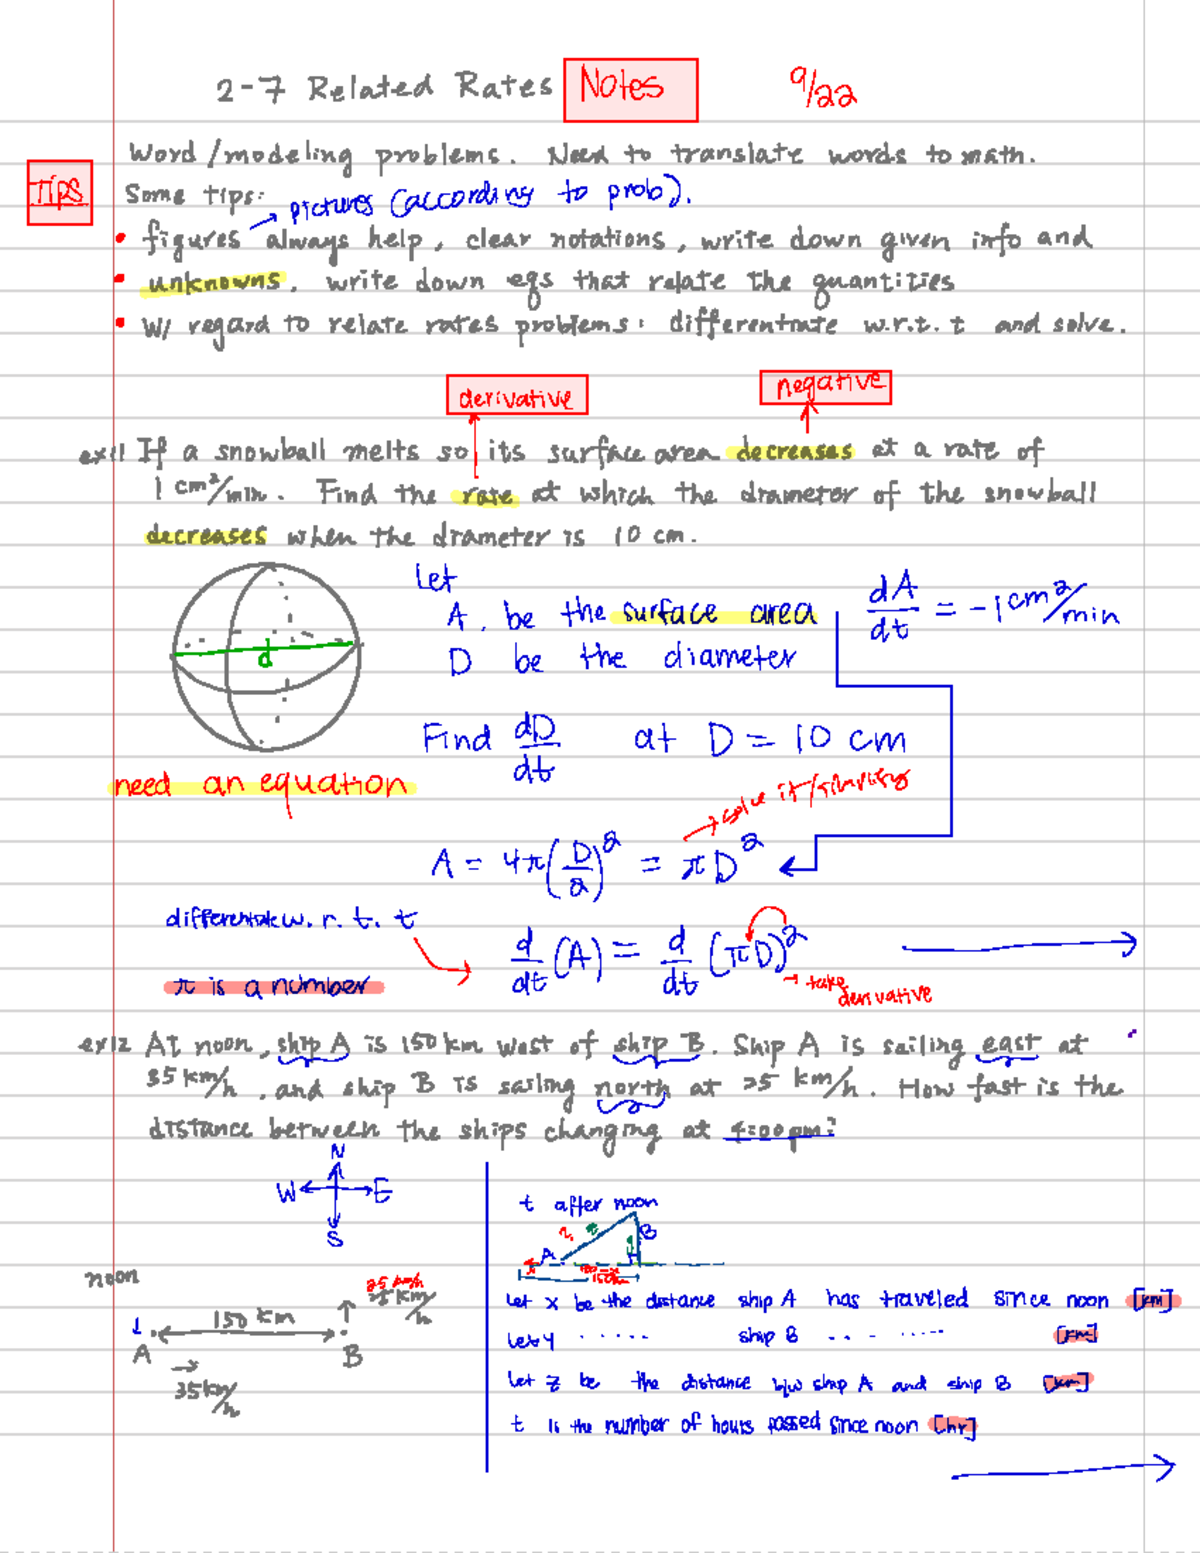 2-7 Related Rates Notes 9/22
Word/modeling problems. Need to translate words to math.
Tips
Some tips:
→ pictures (according to prob).
• figures always help, clear notations, write down given info and
• unknowns. write down eqs that relate the quantities
• W/ regard to relate rates problems: differentiate w.r.t. t and solve.
derivative negative
ex11 If a snowball melts so its surface area decreases at a rate of
1 cm²/min. Find the rate at which the diameter of the snowball
decreases when the diameter is 10 cm.
d
Let
A. be the surface area
D be the diameter
dA/dt = -1 cm²/min
Find dD/dt at D = 10 cm
need an equation
→ solve it/simplify
A = 4π(D/2)² = πD²
differentiate w.r.t. t
d/dt (A) = d/dt (πD)²
π is a number
→ take derivative
ex12 At noon, ship A is 150 km west of ship B. Ship A is sailing east at
35 km/h, and ship B is sailing north at 25 km/h. How fast is the
distance between the ships changing at 4:00pm?
N
W E
S
noon
150 km
A B
35 km/h
25 km/h
t after noon
A
B
Let x be the distance ship A has traveled since noon [km]
Let y ······ ship B ·· · ······ [km]
Let z be the distance b/w ship A and ship B [km]
t is the number of hours passed since noon [hr]